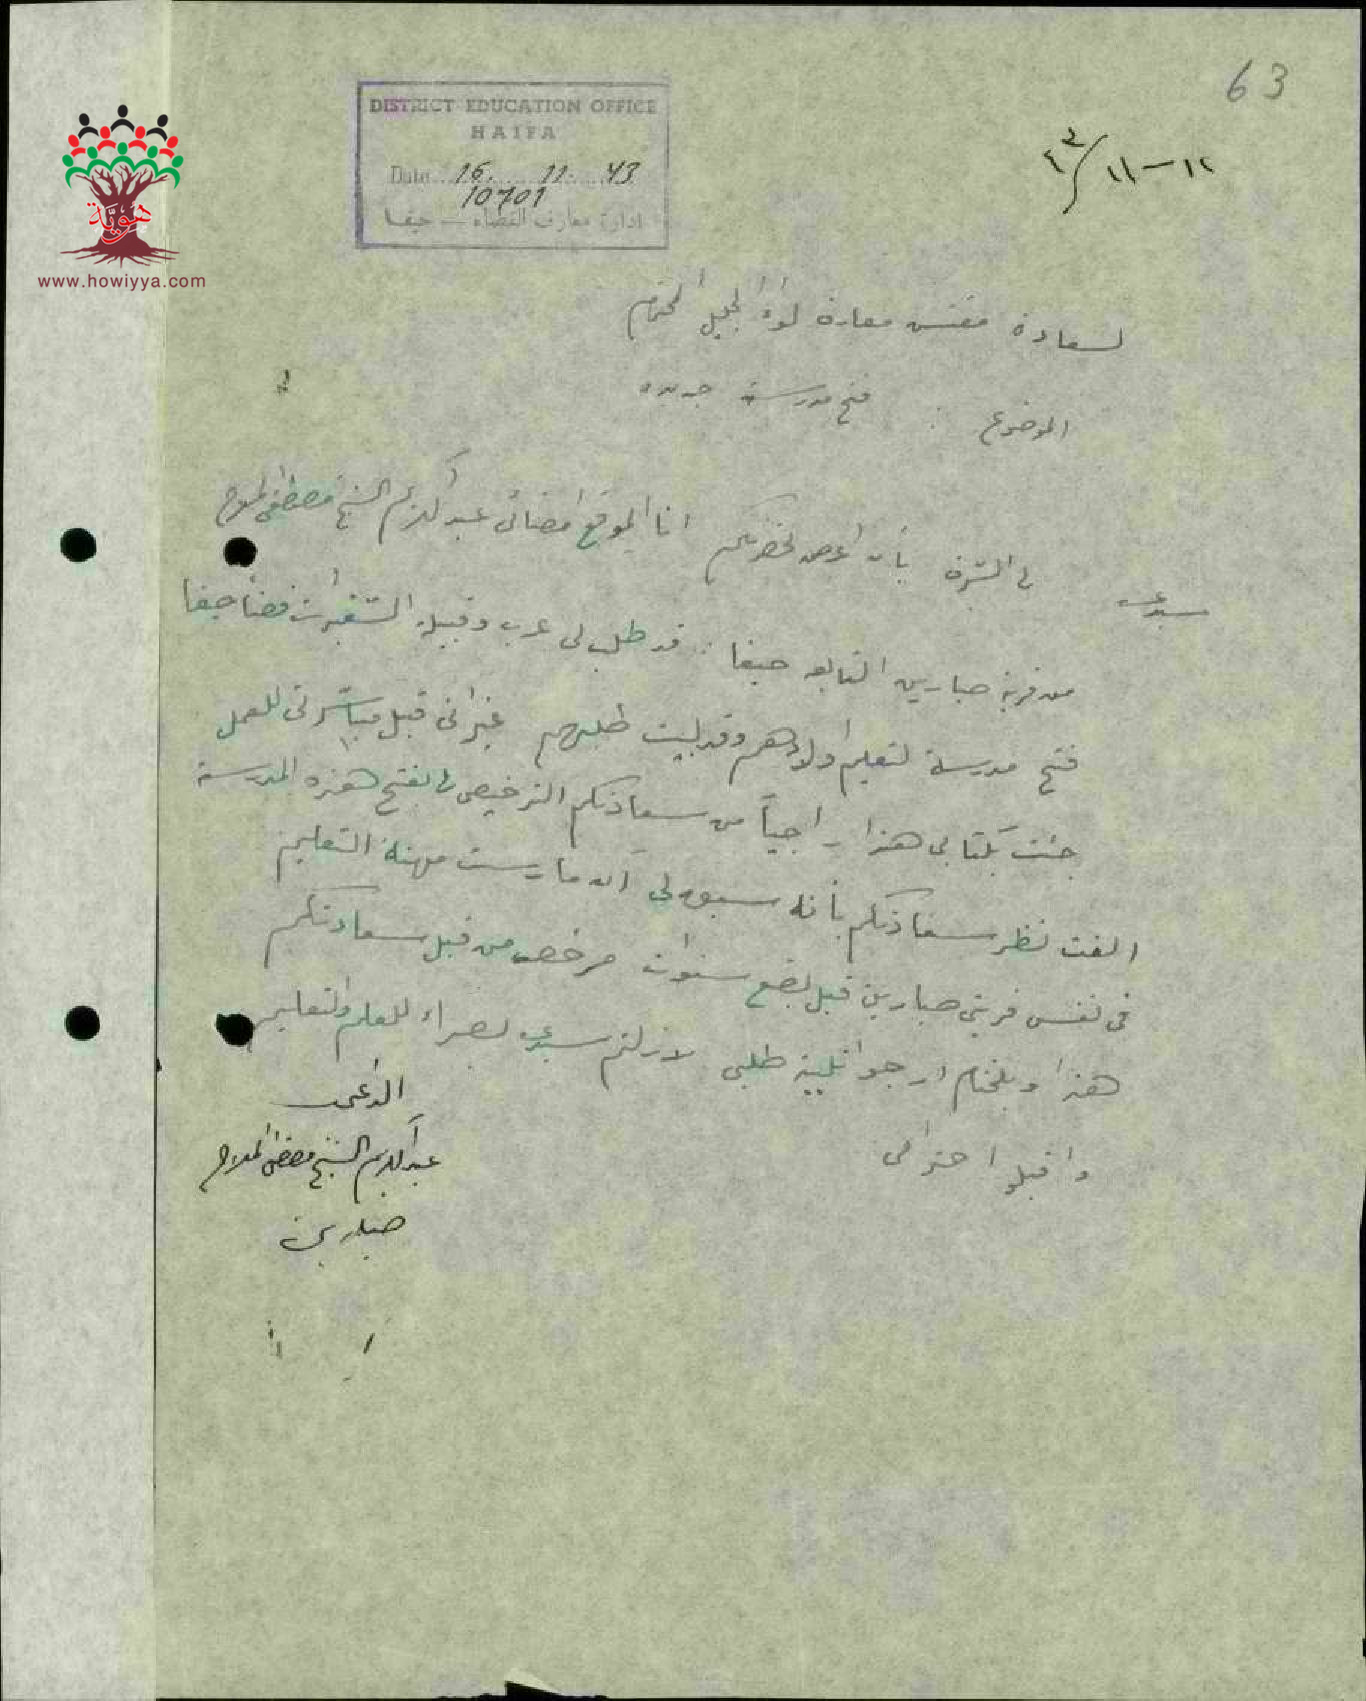 63
١٢-١١/٤٣
DISTRICT EDUCATION OFFICE
HAIFA
Date 16. 11. 43
10701
ادارة معارف القضاء — حيفا
هوية
www.howiyya.com
لسعادة مفتش معارف لواء الجليل المحترم
الموضوع : فتح مدرسة جديده
سيدي
لي الشرف بأن اعرض لحضرتكم انا الموقع امضائي عبد الكريم الشيخ مصطفى
من قرية صبارين التابعه حيفا : قد طلب لي عرب وقبيلة قضاء حيفا
فتح مدرسة لتعليم اولادهم وقد لبيت طلبهم غير اني قبل مباشرتي للعمل
جئت بكتابي هذا راجياً من سعادتكم الترخيص لي بفتح هذه المدرسة
الفت نظر سعادتكم بأنه سبق لي ان مارست مهنة التعليم
في نفس قريتي صبارين قبل بضع سنوات مرخص من قبل سعادتكم
هذا وبلختام ارجو تلبية طلبي لازلتم سيدي نصراء للعلم والتعليم
واقبلوا احترامي
الداعي
عبد الكريم الشيخ مصطفى
صبارين